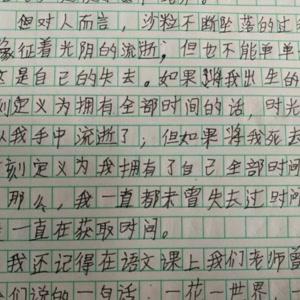 但对人而言，沙粒不断坠落的过
象征着光阴的流逝；但也不能单单
是自己的失去。如果将我出生的
刻定义为拥有全部时间的话，时光
从我手中流逝了；但如果将我死去
刻定义为我拥有了自己全部时间
那么，我一直都未曾失去过时间
一直在获取时间。
我还记得在语文课上我们老师曾
们说的一句话：一花一世界，一